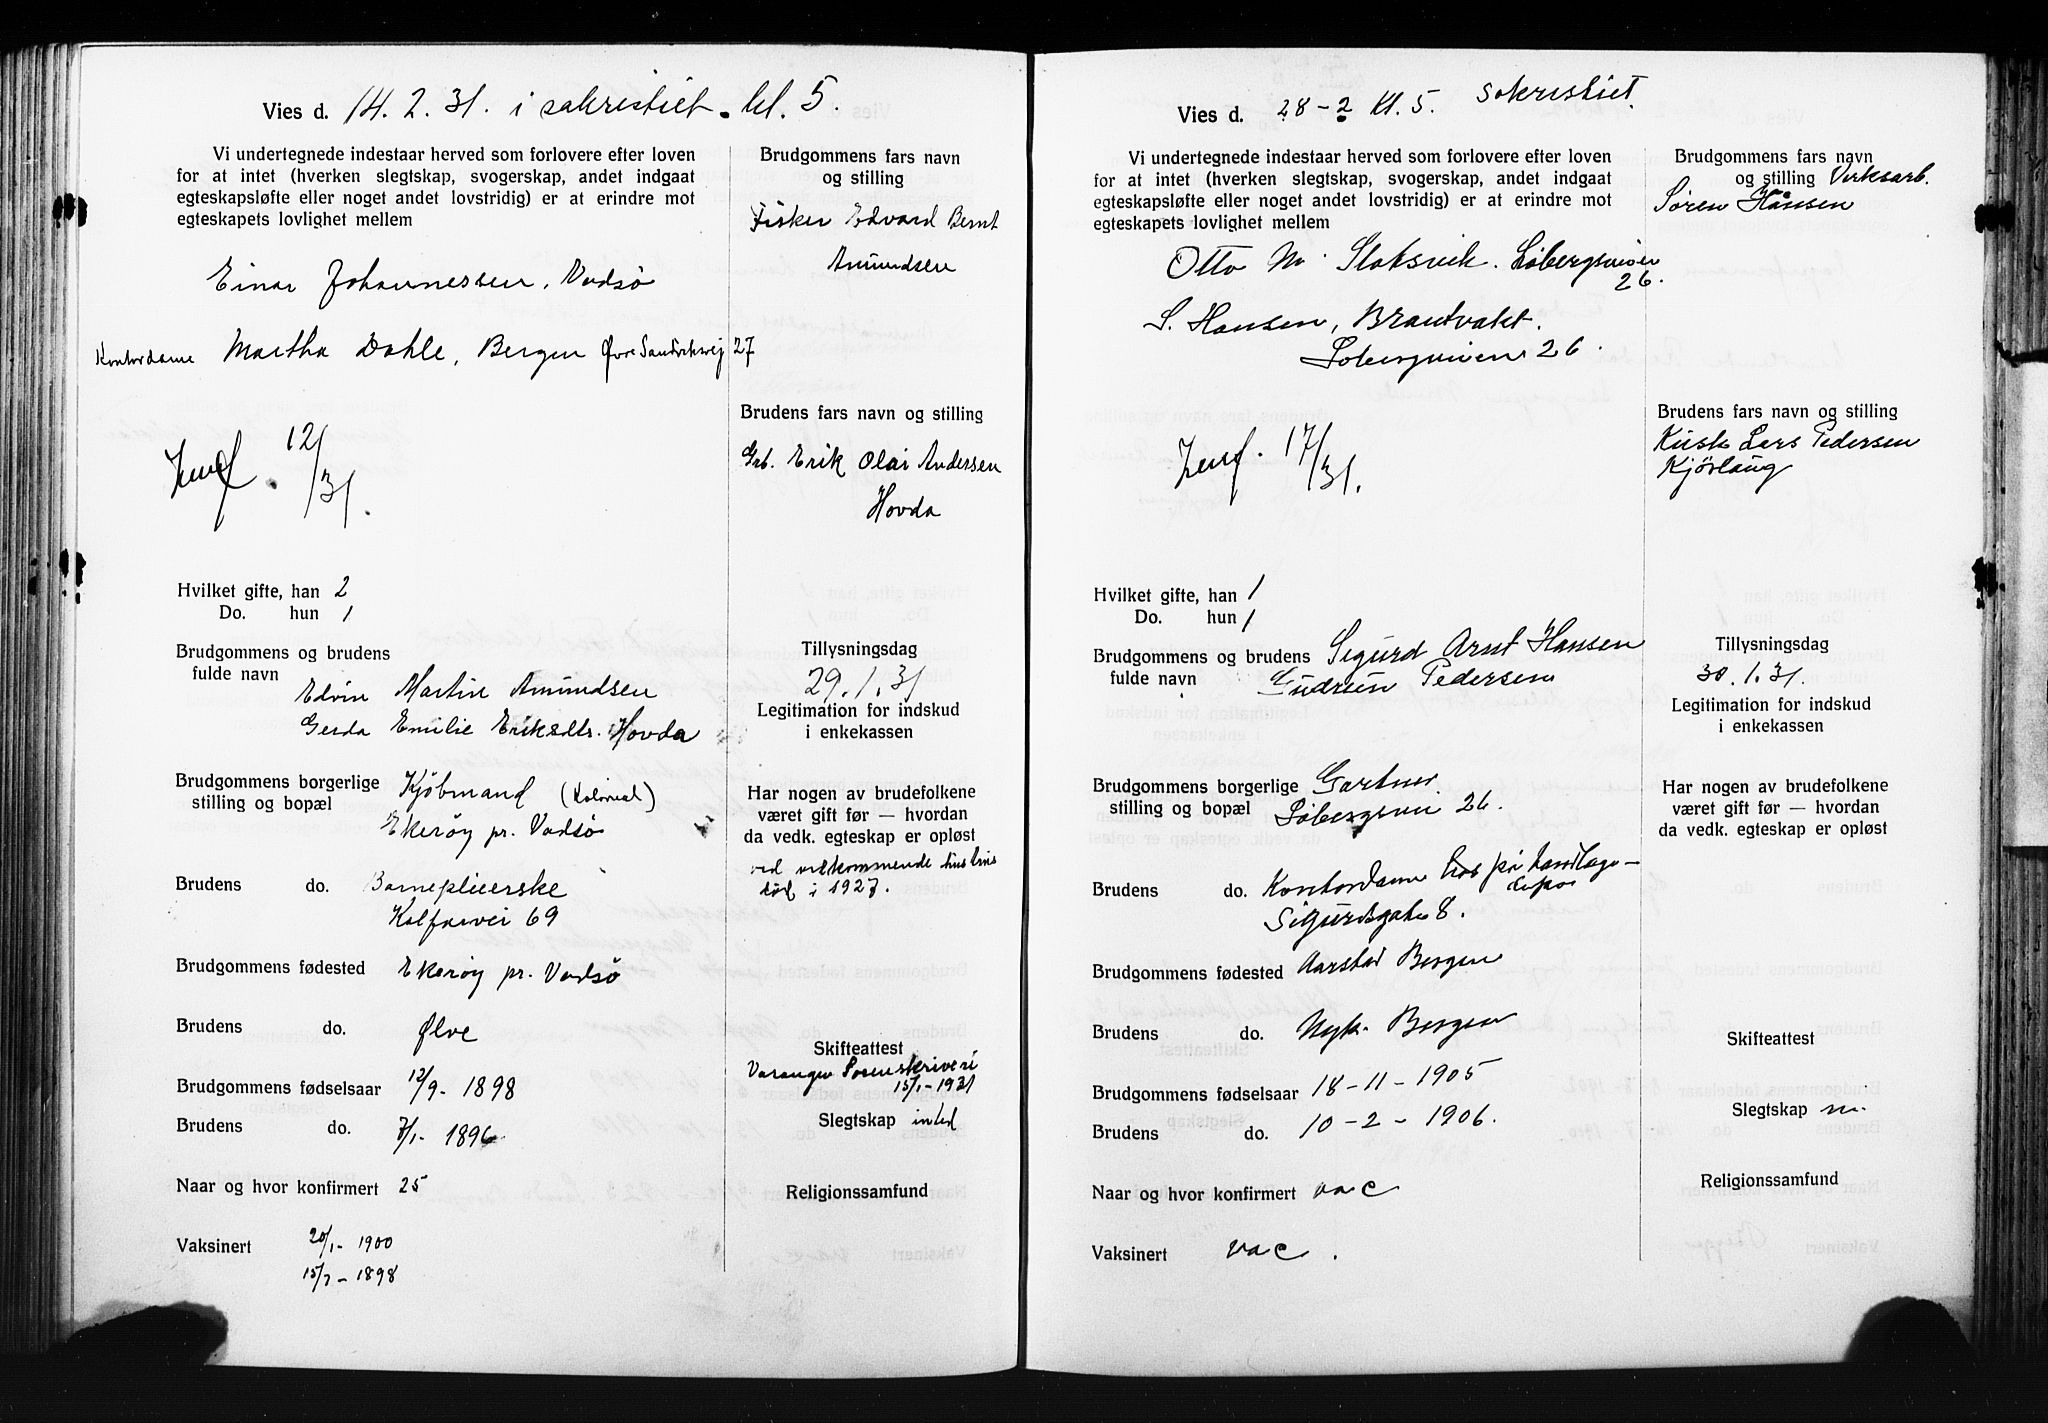 Vies d. 14. 2. 31. i sakristiet. kl. 5.
Vi undertegnede indestaar herved som forlovere efter loven
for at intet (hverken slegtskap, svogerskap, andet indgaat
egteskapsløfte eller noget andet lovstridig) er at erindre mot
egteskapets lovlighet mellem
Einar Johannessen, Vadsø
Kontordame Martha Dahle, Bergen Øvre Sandviksvej 27
12/
/31.
Brudgommens fars navn
og stilling
Fisker Edvard Bernt
Amundsen
Brudens fars navn og stilling
Grb. Erik Olai Andersen
Hovda
Hvilket gifte, han 2
Do. hun 1
Brudgommens og brudens
fulde navn
Edvin Martin Amundsen
Gerda Emilie Eriksdtr. Hovda
Brudgommens borgerlige
stilling og bopæl
Kjøbmand (Kolonial)
Ekerøy pr. Vadsø
Brudens do. Barnepleierske
Kalfarvei 69
Brudgommens fødested Ekerøy pr. Vadsø
Brudens do. Ølve
Brudgommens fødselsaar 12/9- 1898
Brudens do. 7/1- 1896
Naar og hvor konfirmert 25
Vaksinert 20/1- 1900
15/7- 1898
Tillysningsdag
29. 1. 31
Legitimation for indskud
i enkekassen
Har nogen av brudefolkene
været gift før — hvordan
da vedk. egteskap er opløst
ved vedkommende hustrus
død i 1927.
Skifteattest
Varanger Sorenskriveri
15/1-1931
Slegtskap intet
Religionssamfund
Vies d. 28-2 kl. 5. sakristiet.
Vi undertegnede indestaar herved som forlovere efter loven
for at intet (hverken slegtskap, svogerskap, andet indgaat
egteskapsløfte eller noget andet lovstridig) er at erindre mot
egteskapets lovlighet mellem
Otto M. Sloksvik. Løbergsveien
26.
S. Hansen, Brandvakt.
Løbergsveien 26.
17/
/31.
Brudgommens fars navn
og stilling Verksarb.
Søren Hansen
Brudens fars navn og stilling
Kusk Lars Pedersen
Kjørlaug
Hvilket gifte, han 1
Do. hun 1
Brudgommens og brudens
fulde navn
Sigurd Arnt Hansen
Gudrun Pedersen
Brudgommens borgerlige
stilling og bopæl
Gartner
Løbergsvei 26.
Brudens do. Kontordame hos
Sigurdsgate 8.
Brudgommens fødested Aarstad Bergen
Brudens do. Nyk. Bergen
Brudgommens fødselsaar 18-11-1905
Brudens do. 10-2-1906.
Naar og hvor konfirmert vac
Vaksinert vac.
Tillysningsdag
30. 1. 31.
Legitimation for indskud
i enkekassen
Har nogen av brudefolkene
været gift før — hvordan
da vedk. egteskap er opløst
Skifteattest
Slegtskap
Religionssamfund